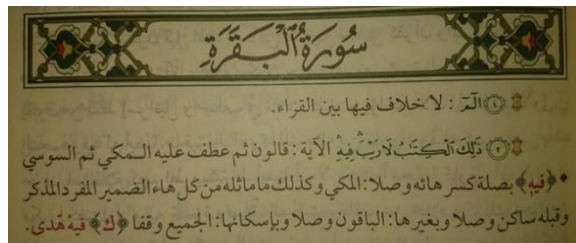 سُورَةُ الْبَقَرَةِ
١ الٓمٓ : لا خلاف فيها بين القراء.
٢ ذَٰلِكَ ٱلْكِتَٰبُ لَا رَيْبَ فِيهِ الآية : قالون ثم عطف عليه المكي ثم السوسي
• ﴿فيهِ﴾ بصلة كسر هائه وصلا: المكي وكذلك ما ماثله من كل هاء الضمير المفرد المذكر
وقبله ساكن وصلا وبغيرها: الباقون وصلا وبإسكانها: الجميع وقفا ﴿ك﴾ فيهْ هُدى.